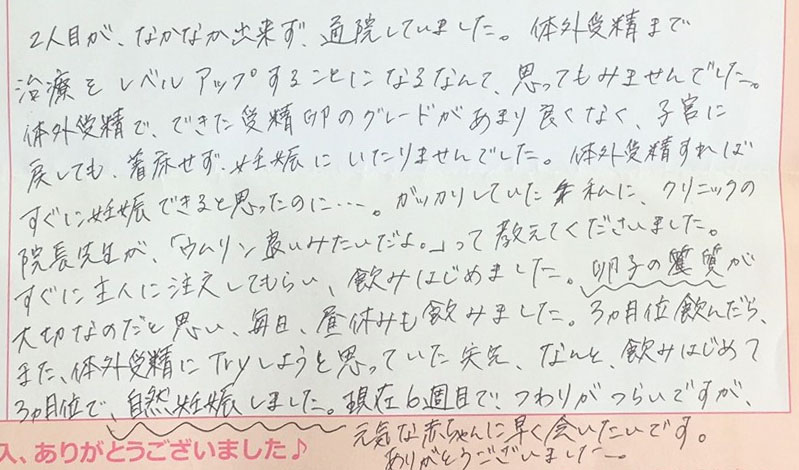 2人目が、なかなか出来ず、通院していました。体外受精まで
治療をレベルアップすることになるなんて、思ってもみませんでした。
体外受精で、できた受精卵のグレードがあまり良くなく、子宮に
戻しても、着床せず、妊娠にいたりませんでした。体外受精すれば
すぐに妊娠できると思ったのに…。がっかりしていた私に、クリニックの
院長先生が、「ウムリン良いみたいだよ。」って教えてくださいました。
すぐに主人に注文してもらい、飲みはじめました。卵子の質が
大切なのだと思い、毎日、昼休みも飲みました。3ヵ月位飲んだら、
また、体外受精にTryしようと思っていた矢先、なんと、飲みはじめて
3ヵ月位で、自然妊娠しました。現在6週目で、つわりがつらいですが、
元気な赤ちゃんに早く会いたいです。
入、ありがとうございました♪
ありがとうございました〜。